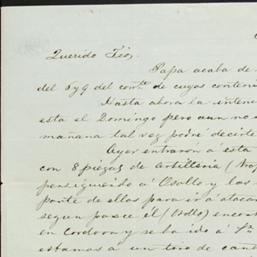 Querido Tio,
Papa acaba de
del 8 y 9 del corrte. de cuyos conteni
Hasta ahora la inten
esta el Domingo pero aun no
mañana tal vez podré decirte
Ayer entraron á esta
con 8 piezas de artilleria
persiguiendo á Osollo y los
parte de ellos para ir á atacar
segun parece él (Osollo)
en Cordova y se ha ido á
estamos á un tiro de